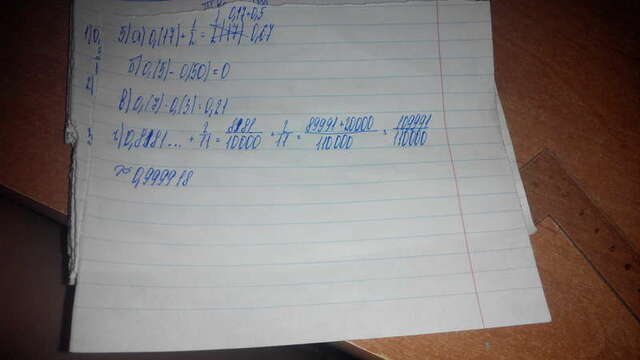 0,17+0,5
5)а) 0,(17)+1/2= 0,67
б) 0,(5)-0,(50)=0
в) 0,(7)·0,(3)=0,21
г) 0,8181...+2/11=8181/10000+2/11=89991+20000/110000=109991/110000
≈0,999918